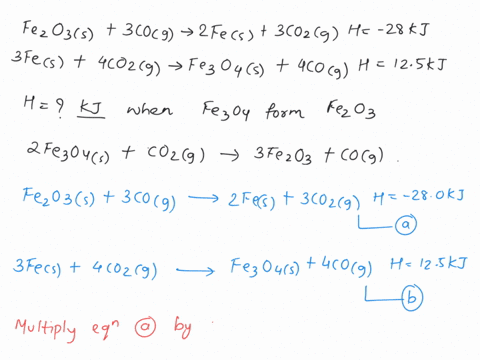 Fe2O3(s) + 3CO(g) → 2Fe(s) + 3CO2(g) H = -28 KJ
3Fe(s) + 4CO2(g) → Fe3O4(s) + 4CO(g) H = 12.5 KJ
H = ? KJ when Fe3O4 form Fe2O3
2Fe3O4(s) + CO2(g) → 3Fe2O3 + CO(g).
Fe2O3(s) + 3CO(g) → 2Fe(s) + 3CO2(g) H = -28.0 KJ
a
3Fe(s) + 4CO2(g) → Fe3O4(s) + 4CO(g) H = 12.5 KJ
b
Multiply eqn a by